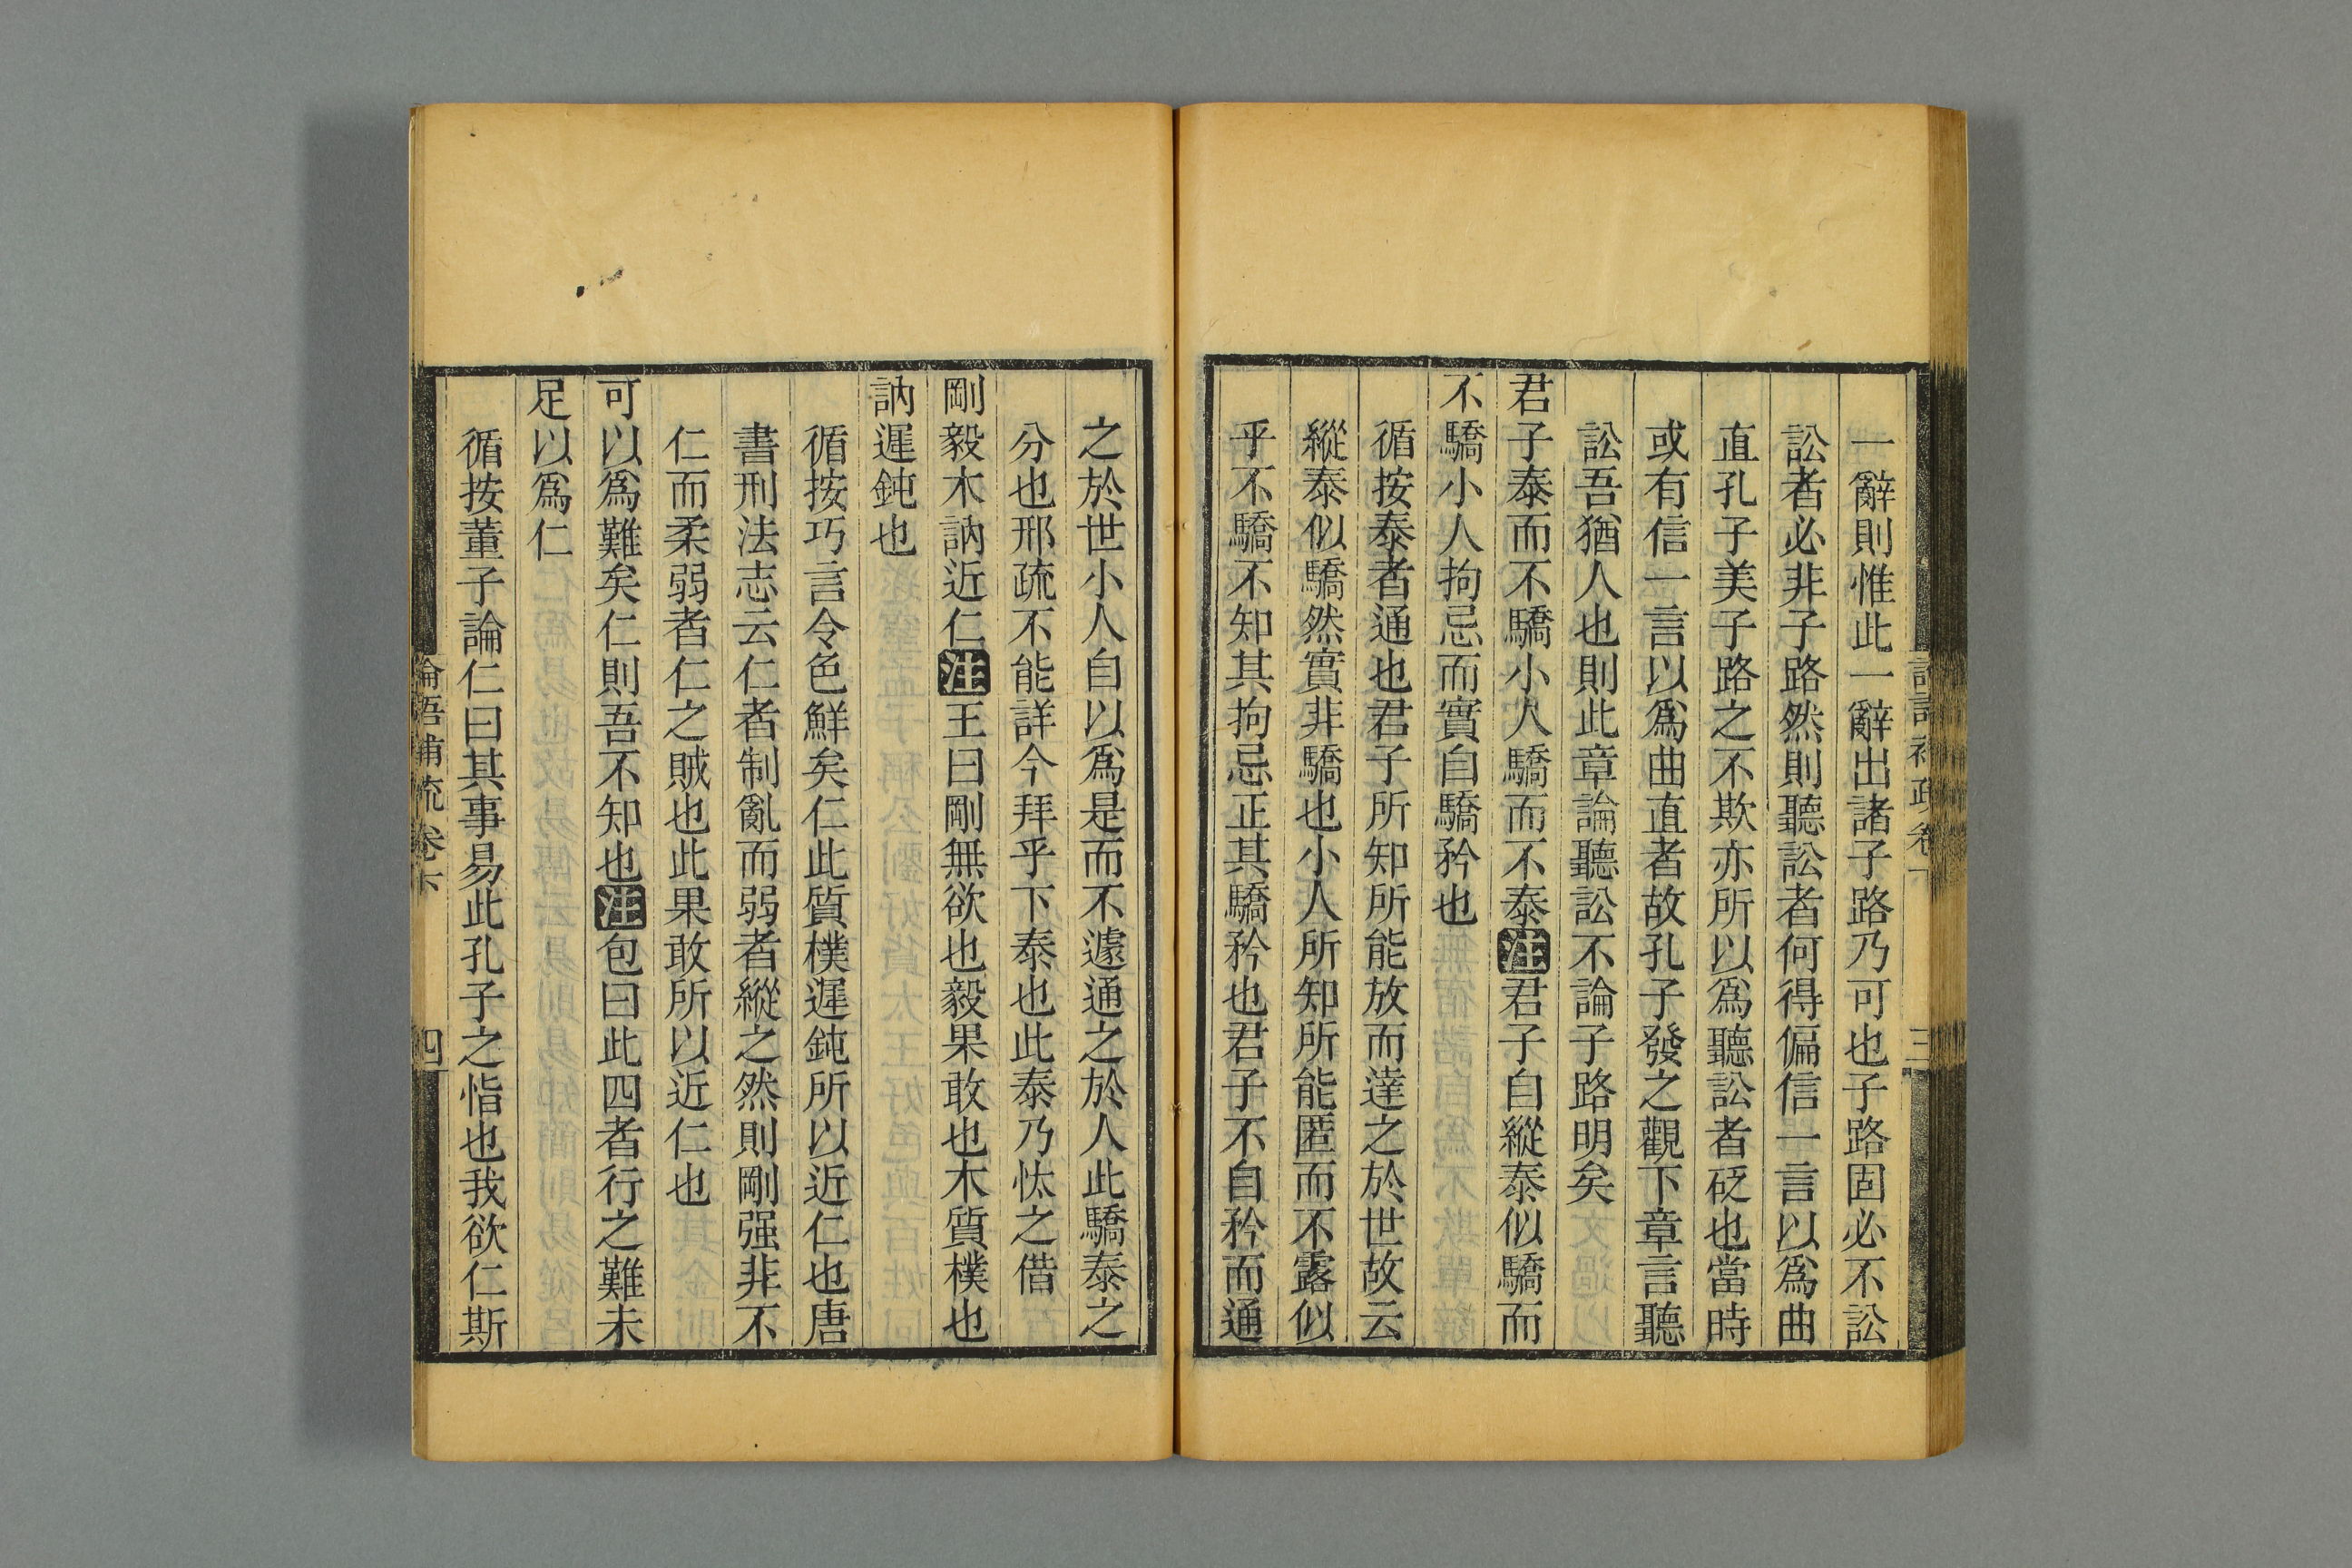 一辭則惟此一辭出諸子路乃可也子路固必不訟
訟者必非子路然則聽訟者何得偏信一言以爲曲
直孔子美子路之不欺亦所以爲聽訟者砭也當時
或有信一言以爲曲直者故孔子發之觀下章言聽
訟吾猶人也則此章論聽訟不論子路明矣
君子泰而不驕小人驕而不泰注君子自縱泰似驕而
不驕小人拘忌而實自驕矜也
循按泰者通也君子所知所能放而達之於世故云
縱泰似驕然實非驕也小人所知所能匿而不露似
乎不驕不知其拘忌正其驕矜也君子不自矜而通
之於世小人自以爲是而不遽通之於人此驕泰之
分也邢疏不能詳今拜乎下泰也此泰乃忲之借
剛毅木訥近仁注王曰剛無欲也毅果敢也木質樸也
訥遲鈍也
循按巧言令色鮮矣仁此質樸遲鈍所以近仁也唐
書刑法志云仁者制亂而弱者縱之然則剛强非不
仁而柔弱者仁之賊也此果敢所以近仁也
可以爲難矣仁則吾不知也注包曰此四者行之難未
足以爲仁
循按董子論仁曰其事易此孔子之恉也我欲仁斯
論語補疏卷下
四